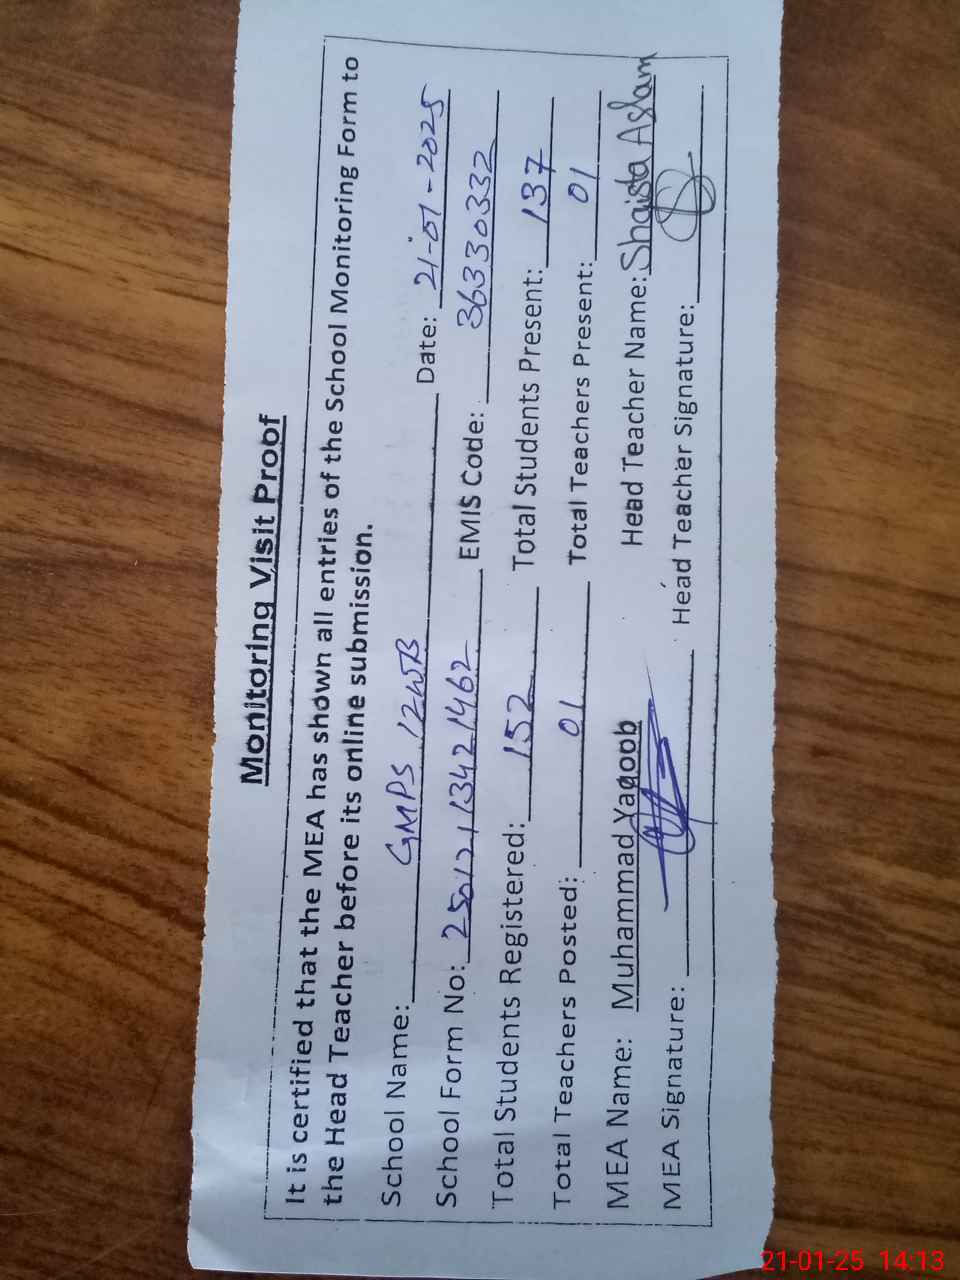 Monitoring Visit Proof
It is certified that the MEA has shown all entries of the School Monitoring Form to
the Head Teacher before its online submission.
School Name: GMPS 12WB Date: 21-01-2025
School Form No: 25012113421462 EMIS Code: 36330332
Total Students Registered: 152 Total Students Present: 137
Total Teachers Posted: 01 Total Teachers Present: 01
MEA Name: Muhammad Yaqoob Head Teacher Name: Shaista Aslam
MEA Signature: Head Teacher Signature:
21-01-25 14:13